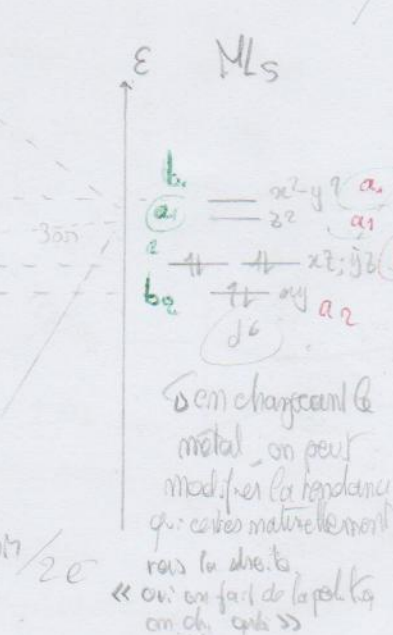 ε ML5
b1 x²-y² a1
a1 z² a1
3δσ e xz; yz
b2 xy a2
d6
en changeant le
métal, on peut
modifier la tendance
qui certes naturellement
/2e vers la droite.
« oui on fait de la politique
en